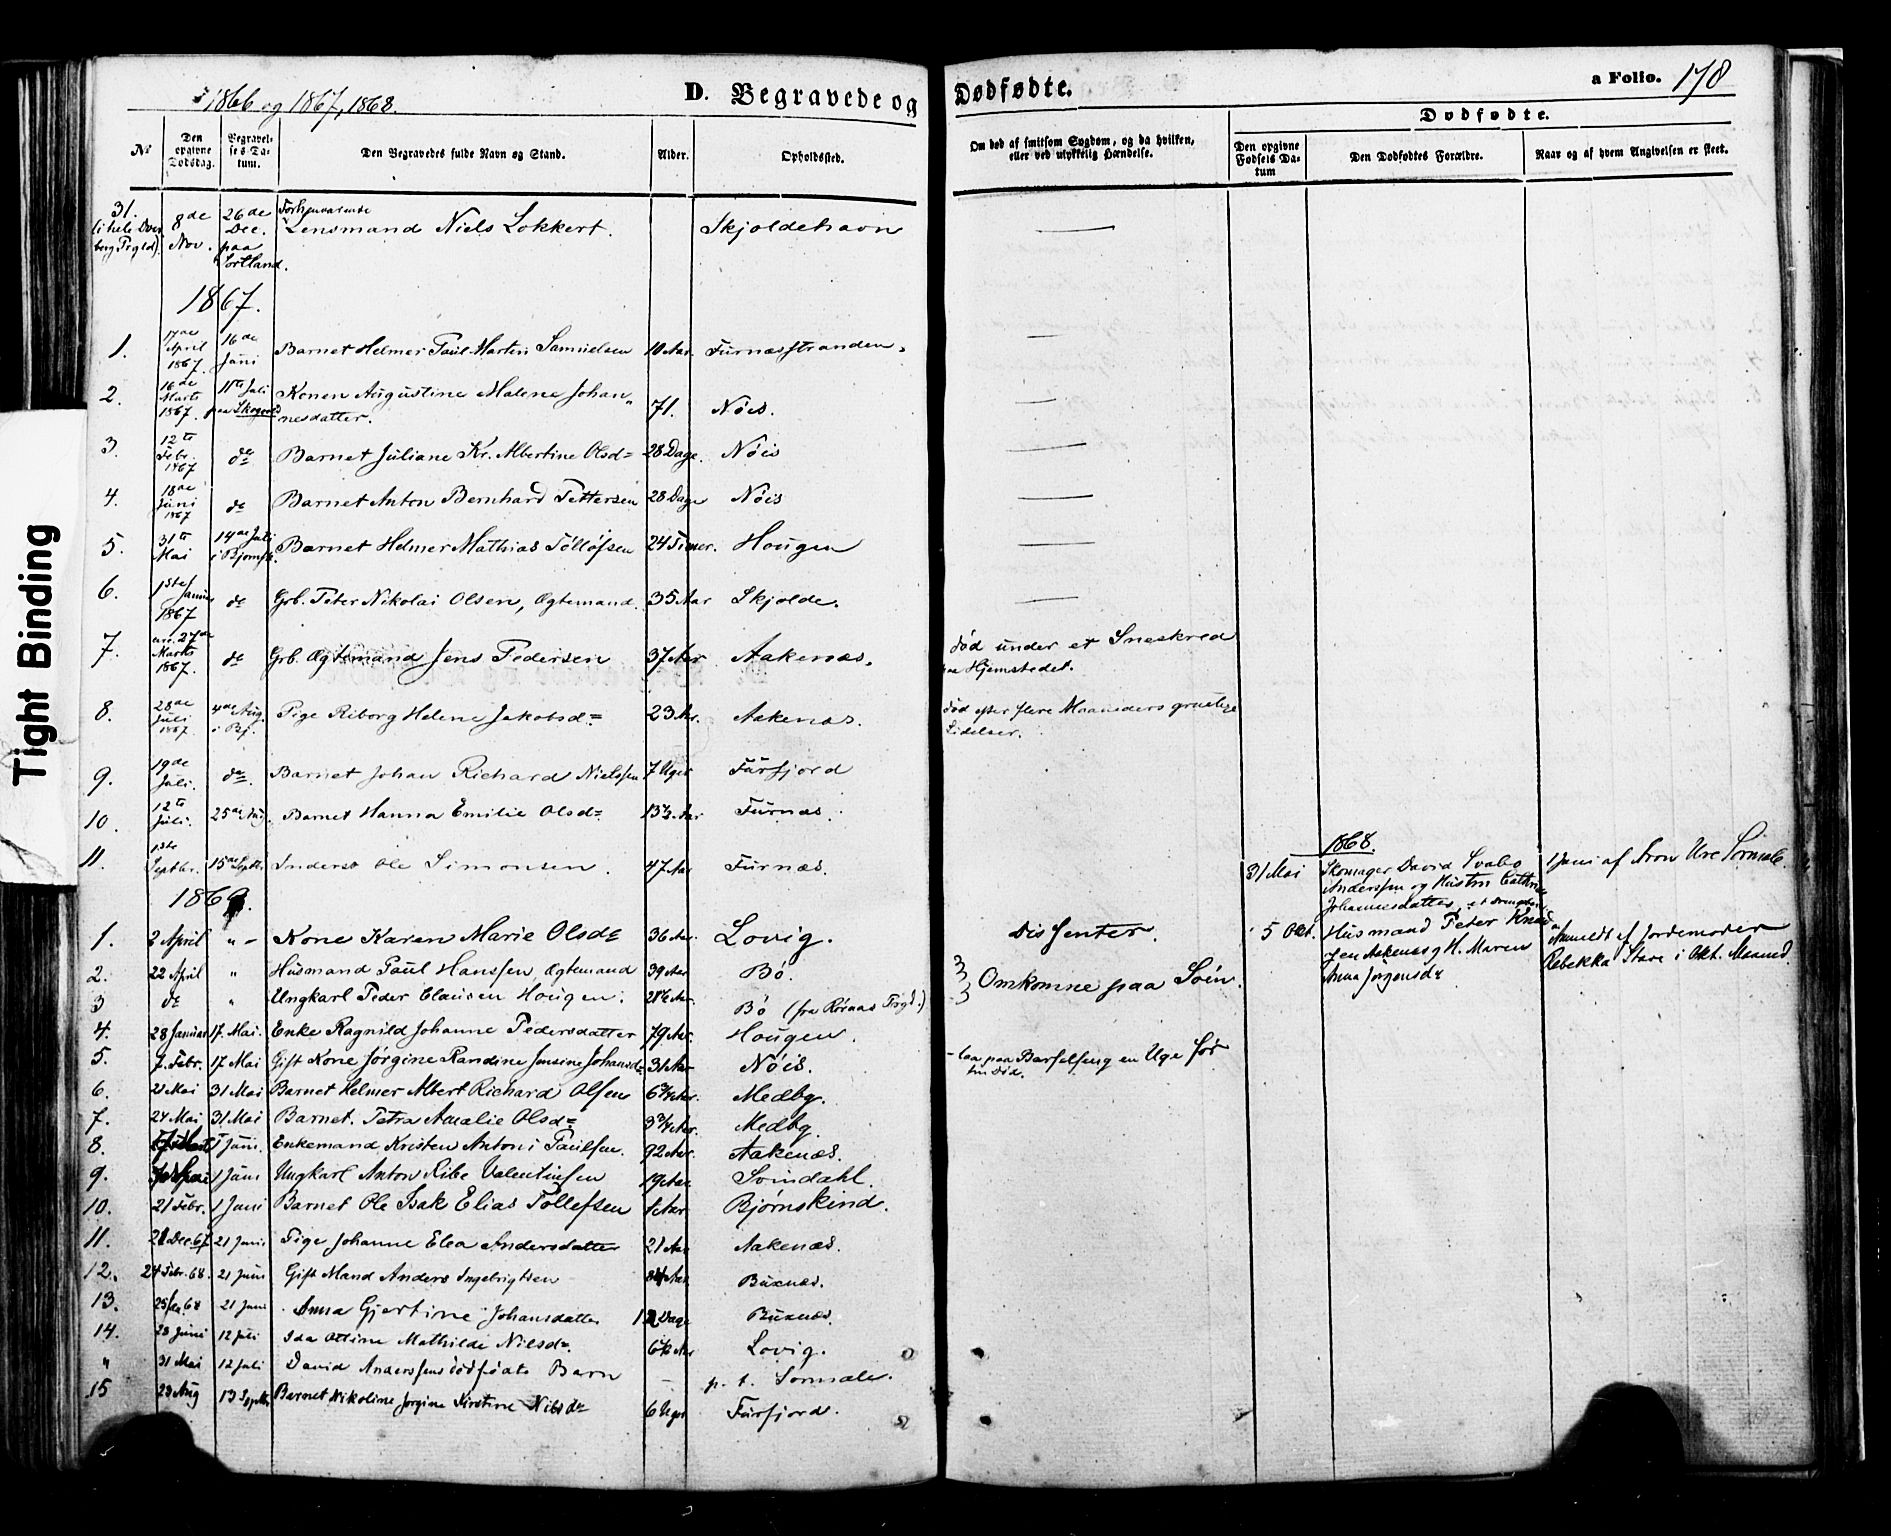 1866 og 1867, 1868.
D. Begravede og Dødfødte.
a Folio. 178
No
Den opgivne Dødsdag.
Begravelses Datum.
Den Begravedes fulde Navn og Stand.
Alder.
Opholdssted.
Om død af smitsom Sygdom, og da hvilken, eller ved ulykkelig Hændelse.
Dødfødte.
Den opgivne Fødsels Datum
Den Dødfødtes Forældre.
Naar og af hvem Angivelsen er skeet.
31. 8de Nov. 26de Dec. paa Sortland. Forhenværende Lensmand Niels Lokkert. Skjoldehavn —
1867.
1. 17de April 1867. 16de Juni Barnet Helmer Paul Martin Samuelsen 10 Aar. Furnæsstranden. —
2. 16de Marts 1867. 11te Juli paa Skogvold Konen Augustine Malene Johan-
nesdatter. 71. Nöis. —
3. 12te Febr. 1867 do Barnet Juliane Kr. Albertine Olsd= 28 Dage. Nöis —
4. 18de Juni 1867 do Barnet Anton Bernhard Pettersen 28 Dage Nöis —
5. 31te Mai 14de Juli i Bjørnsk. Barnet Helmer Mathias Tölløfsen 24 Timer. Hougen —
6. 1ste Januar 1867 do Grb. Peter Nikolai Olsen, Ægtemand. 35 Aar Skjolde. —
7. 27de Marts 1867. do Grb. Ægtemand Jens Pedersen 37 Aar Aakenæs. død under et Sneskred
paa Hjemstedet.
8. 28de Juli 1867. 4de Aug. i Bj. Pige Riborg Helene Jakobsd= 23 Ar. Aakenæs. død efter flere Maaneders gruelige
Lidelser.
9. 19de Juli. do Barnet Johan Richard Nielssen 7 Uger Furfjord
10. 12te Juli. 25de Aug. Barnet Hanna Emilie Olsd= 13½ Aar Furnæs.
11. 1ste Septbr. 15de Septb. Inderst Ole Simonsen. 47 Aar Furnæs.
1868.
31 Mai Skomager David Svabo
Anderssen og Hustru Cathrine
Johannesdatter, et Drengebarn 1 Juni af Aron Ure Sørmæle
1868.
1. 2 April " - Kone Karen Marie Olsd= 36 Aar. Lovig. Dissenter.
5 Oct. Husmand Peter Knud-
sen Aakenæs og H. Maren
Anna Jørgensd= Anmeldt af Jordemoder
Rebekka Stave i Okt. Maaned.
2. 22 April " Husmand Paul Hanssen, Ægtemand 39 Aar Bö. Omkomne paa Søen.
3 do " Ungkarl Peder Clausen Hougen. Bö (fra Rörnæs Prgd.)
4. 28 Januar 17. Mai. Enke Ragnild Johanne Pedersdatter 79 Aar. Hougen.
5. 7. Febr. 17 Mai Gift Kone Jørgine Randine Jensine Johansd= 31 Aar Nöis. - laa paa Barselseng en Uge før
hun død.
6. 21 Mai 31 Mai Barnet Helmer Albert Richard Olsen 6¾ Aar. Medbg.
7. 24 Mai 31 Mai Barnet. Petra Amalie Olsd= 3¾ Aar. Medbg.
8. 1 Juni. Enkemand Kristen Antoni Paulsen. 92 Aar. Aakenæs.
9. 1 Juni Ungkarl Anton Ribe Valentinsen 19 Aar. Svindahl.
10. 21 Febr. 1 Juni Barnet Ole Isak Elias Tollefsen 1 Aar Bjørnskind.
11. 21 Dec. 67 21 Juni Pige Johanne Elea Andersdatter 21 Aar Aakenæs.
12. 24 Febr. 68. 21 Juni Gift Mand Anders Ingebrigtsen Aar. Buxnæs.
13. 21 Juni Anna Gjertine Johansdatter Dage Buxnæs.
14. 28 Juni 12 Juli Ida Otline Mathilde Nilsd= Lovig.
" 31 Mai 12 Juli David Anderssens dödfödte Barn — p. t. Sørmæle.
15 23 Aug 13 Septbr Barnet Nikoline Jørgine Kirstine Nilsd= 6 Uger Furfjord.
Tight Binding